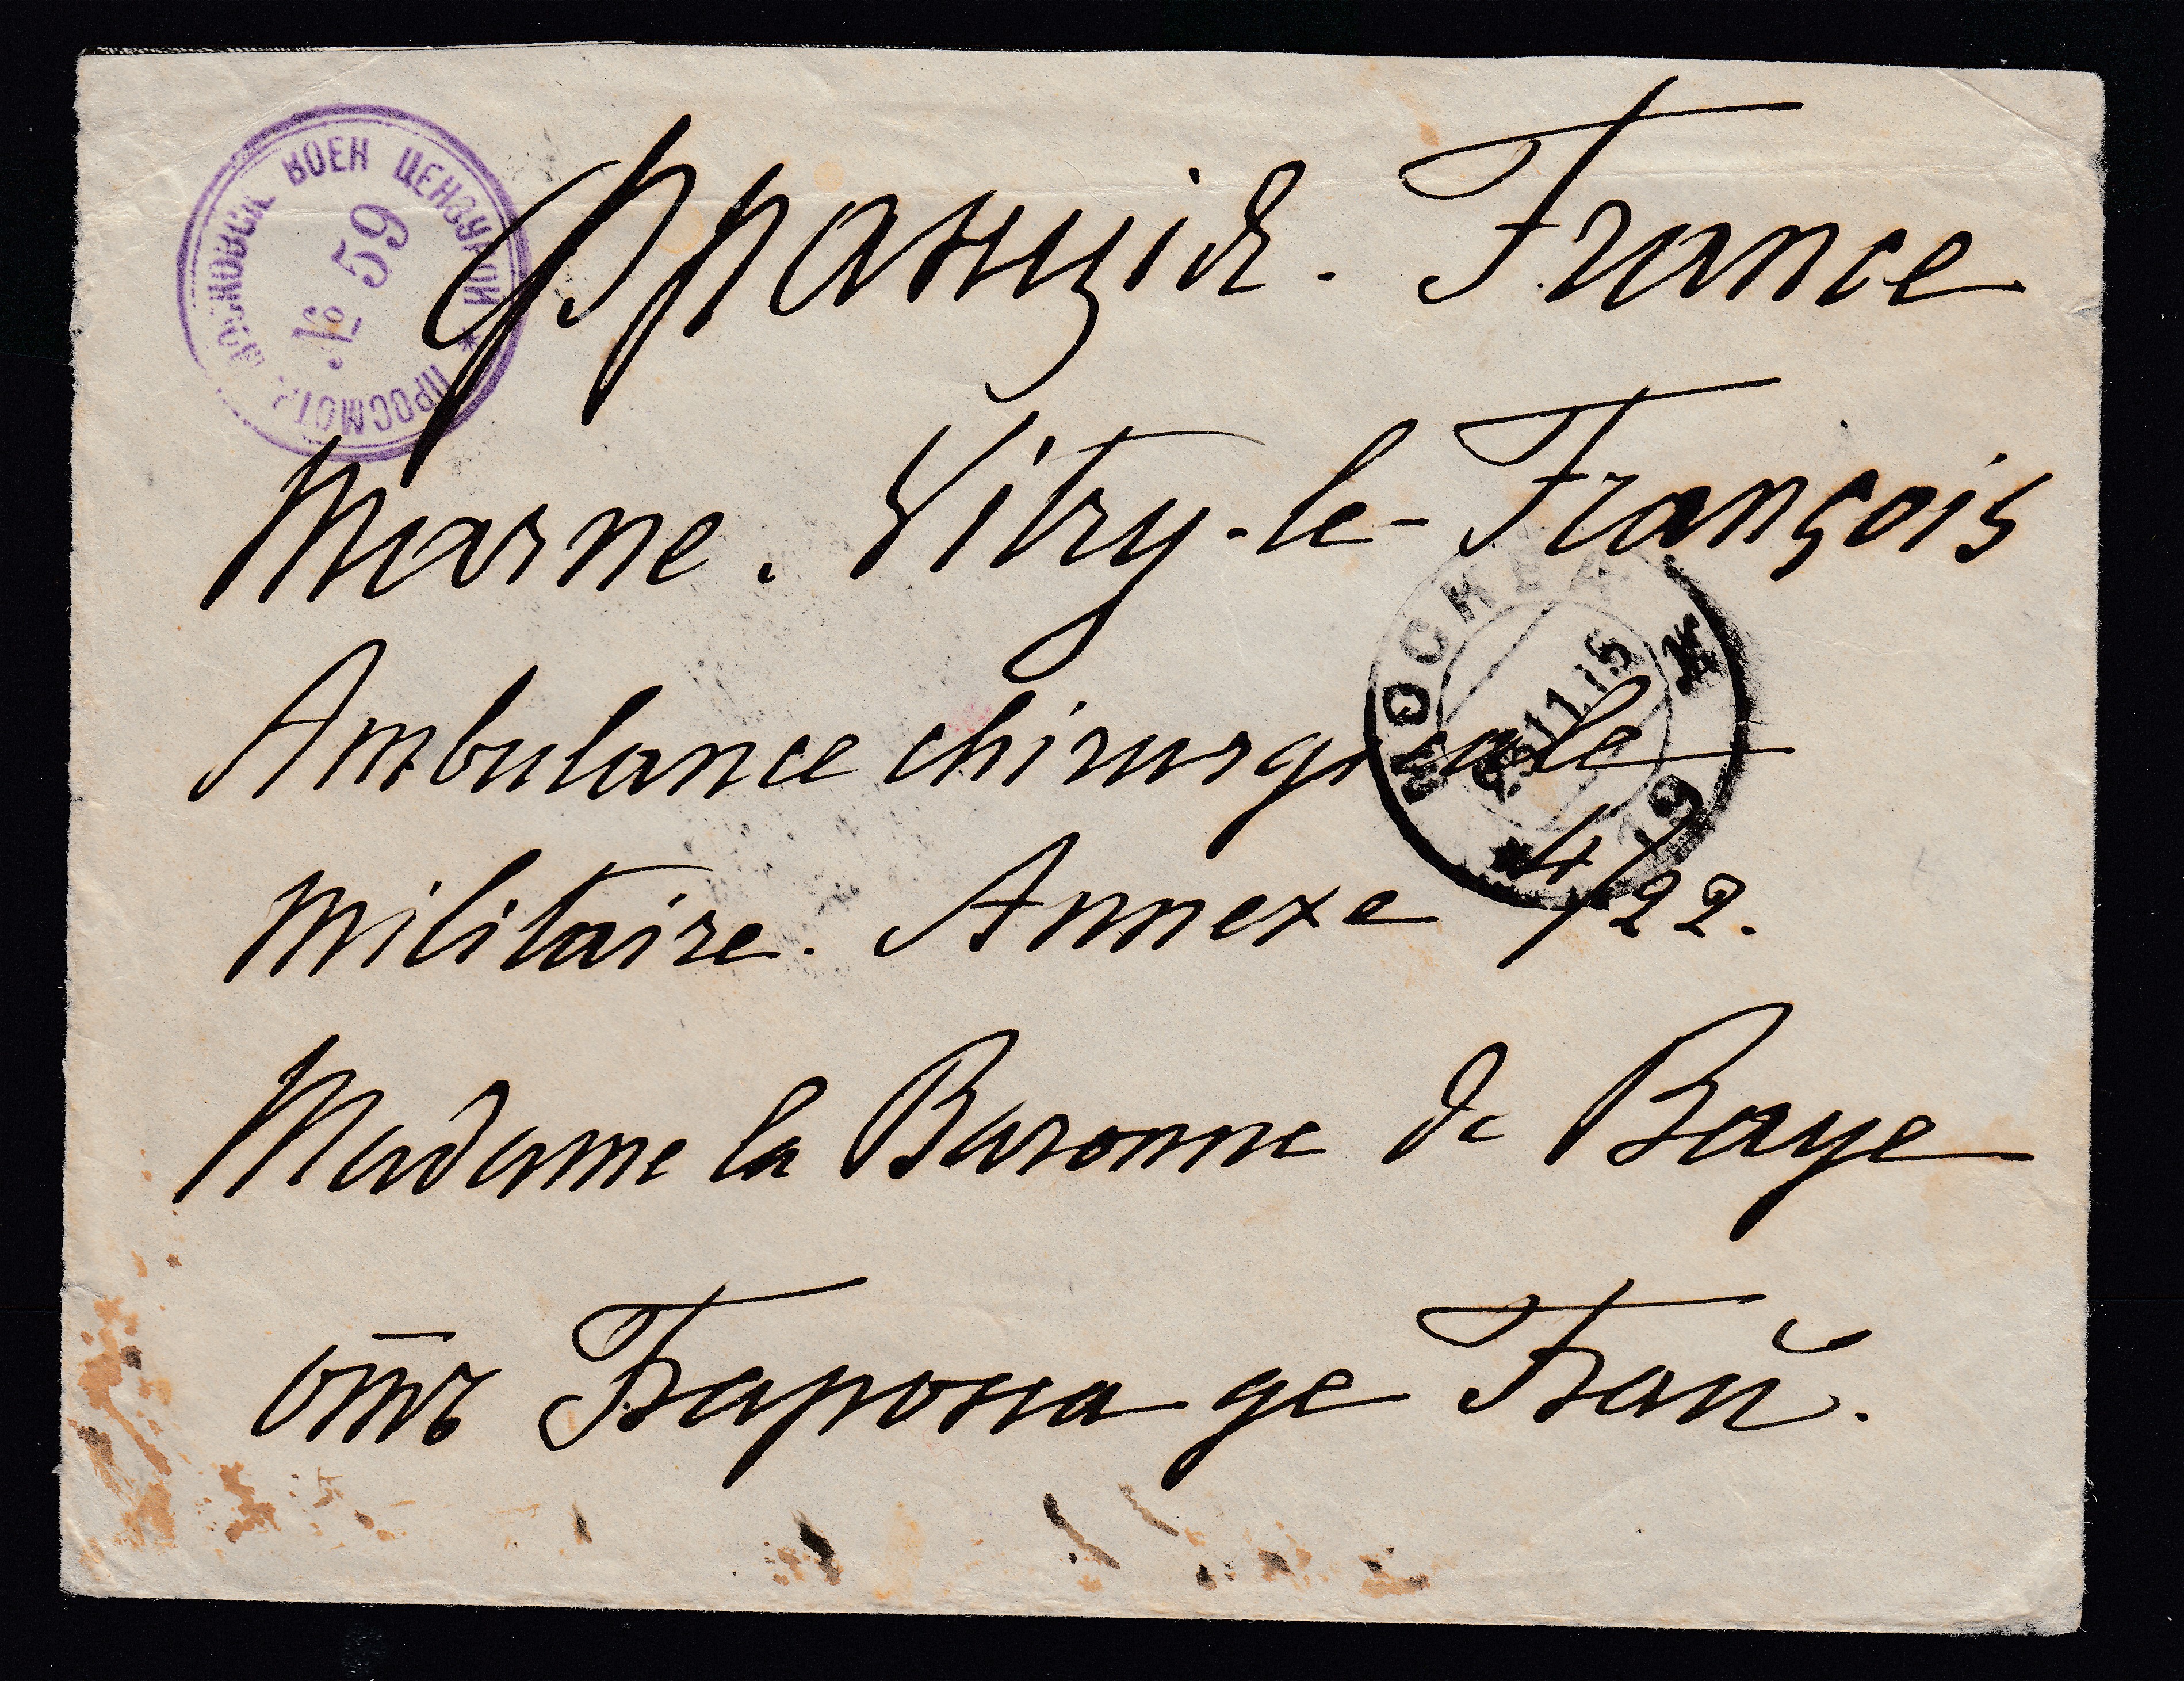 Франція. France
Marne. Vitry-le-François
Ambulance chirurgicale
militaire. Annexe 4/22.
Madame la Baronne de Baye
отъ Барона де Бай.
ПРОСМОТР. МОСКОВСК ВОЕН ЦЕНЗУРОЙ *
№ 59
МОСКВА
11 15
19